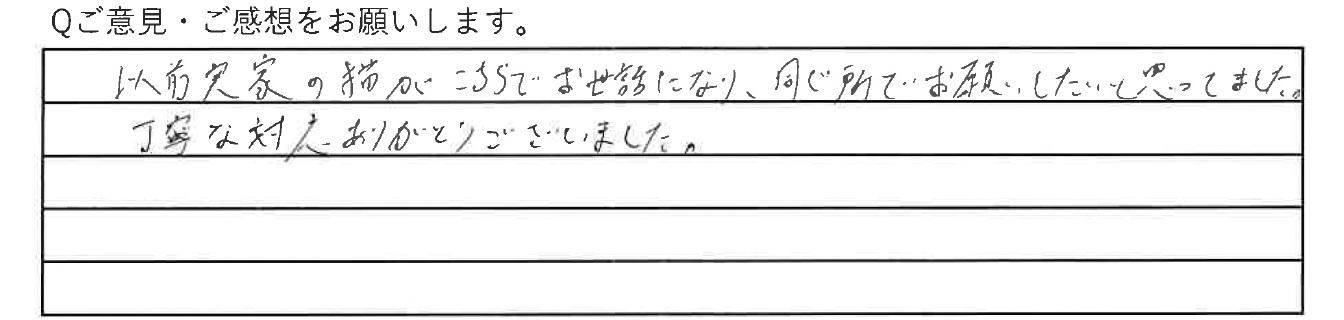 Qご意見・ご感想をお願いします。
以前実家の猫がこちらでお世話になり、同じ所でお願いしたいと思ってました。
丁寧な対応ありがとうございました。